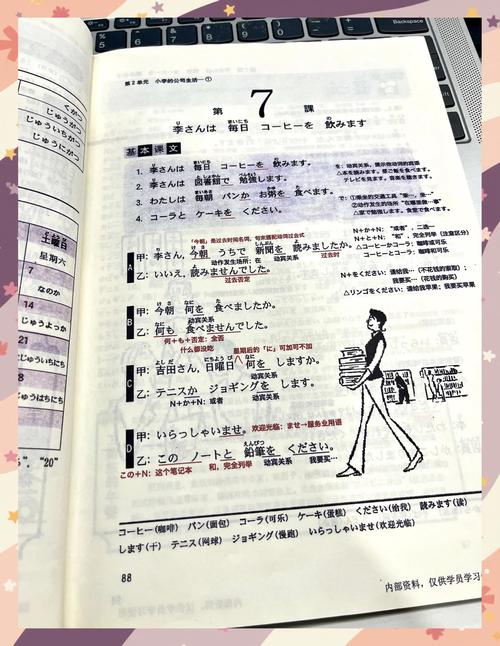 くがつ
じゅうがつ
じゅういちがつ
じゅうにがつ
土曜日
星期六
7
なのか
14
じゅうよっか
21
じゅういちにち
8
じゅうはちにち
"20"
Backspace
第2单元 小李的公司生活—①
第 7 課
李さんは 毎日 コーヒーを 飲みます
基本课文
1. 李さんは 毎日 コーヒーを 飲みます。
2. 李さんは 図書館で 勉強します。
3. わたしは 毎朝 パンか お粥を 食べます。
4. コーラと ケーキを ください。
テレビを見ます。音楽を聴きます。
N+か+N:"或者",二选一
N+と+N:"和",完全列举(注意区分)
△コーヒーかコーラ:咖啡或可乐
コーヒーとコーラ:咖啡和可乐
「今朝」是过去时间名词,句末搭配动词过去式
A
甲:李さん,今朝 うちで 新聞を 読みましたか。
动作发生场所:在 动宾关系 过去时
乙:いいえ,読みませんでした。
过去否定
Nをください:请给我…(不花钱的索取);
我要买…(花钱的购买)
△リンゴをください:请给我苹果;我要买苹果
B
甲:今朝 何を 食べましたか。
动宾关系
乙:何も 食べませんでした。
何+も+否定:全否
什么都没吃
星期后的「に」可加可不加
C
甲:吉田さん,日曜日 何を しますか。
动宾关系
乙:テニスか ジョギングを します。
N+か+N:或者 动宾关系
D
甲:いらっしゃいませ。 欢迎光临:ませ→服务业用语
乙:この ノートと 鉛筆を ください。
この+N:这个笔记本 和,完全列举 动宾关系 我要买…
コーヒー(咖啡) パン(面包) コーラ(可乐) ケーキ(蛋糕) ください(给我) 読みます(读)
します(干) テニス(网球) ジョギング(慢跑) いらっしゃいませ(欢迎光临)
88
内部资料,仅供学员学习